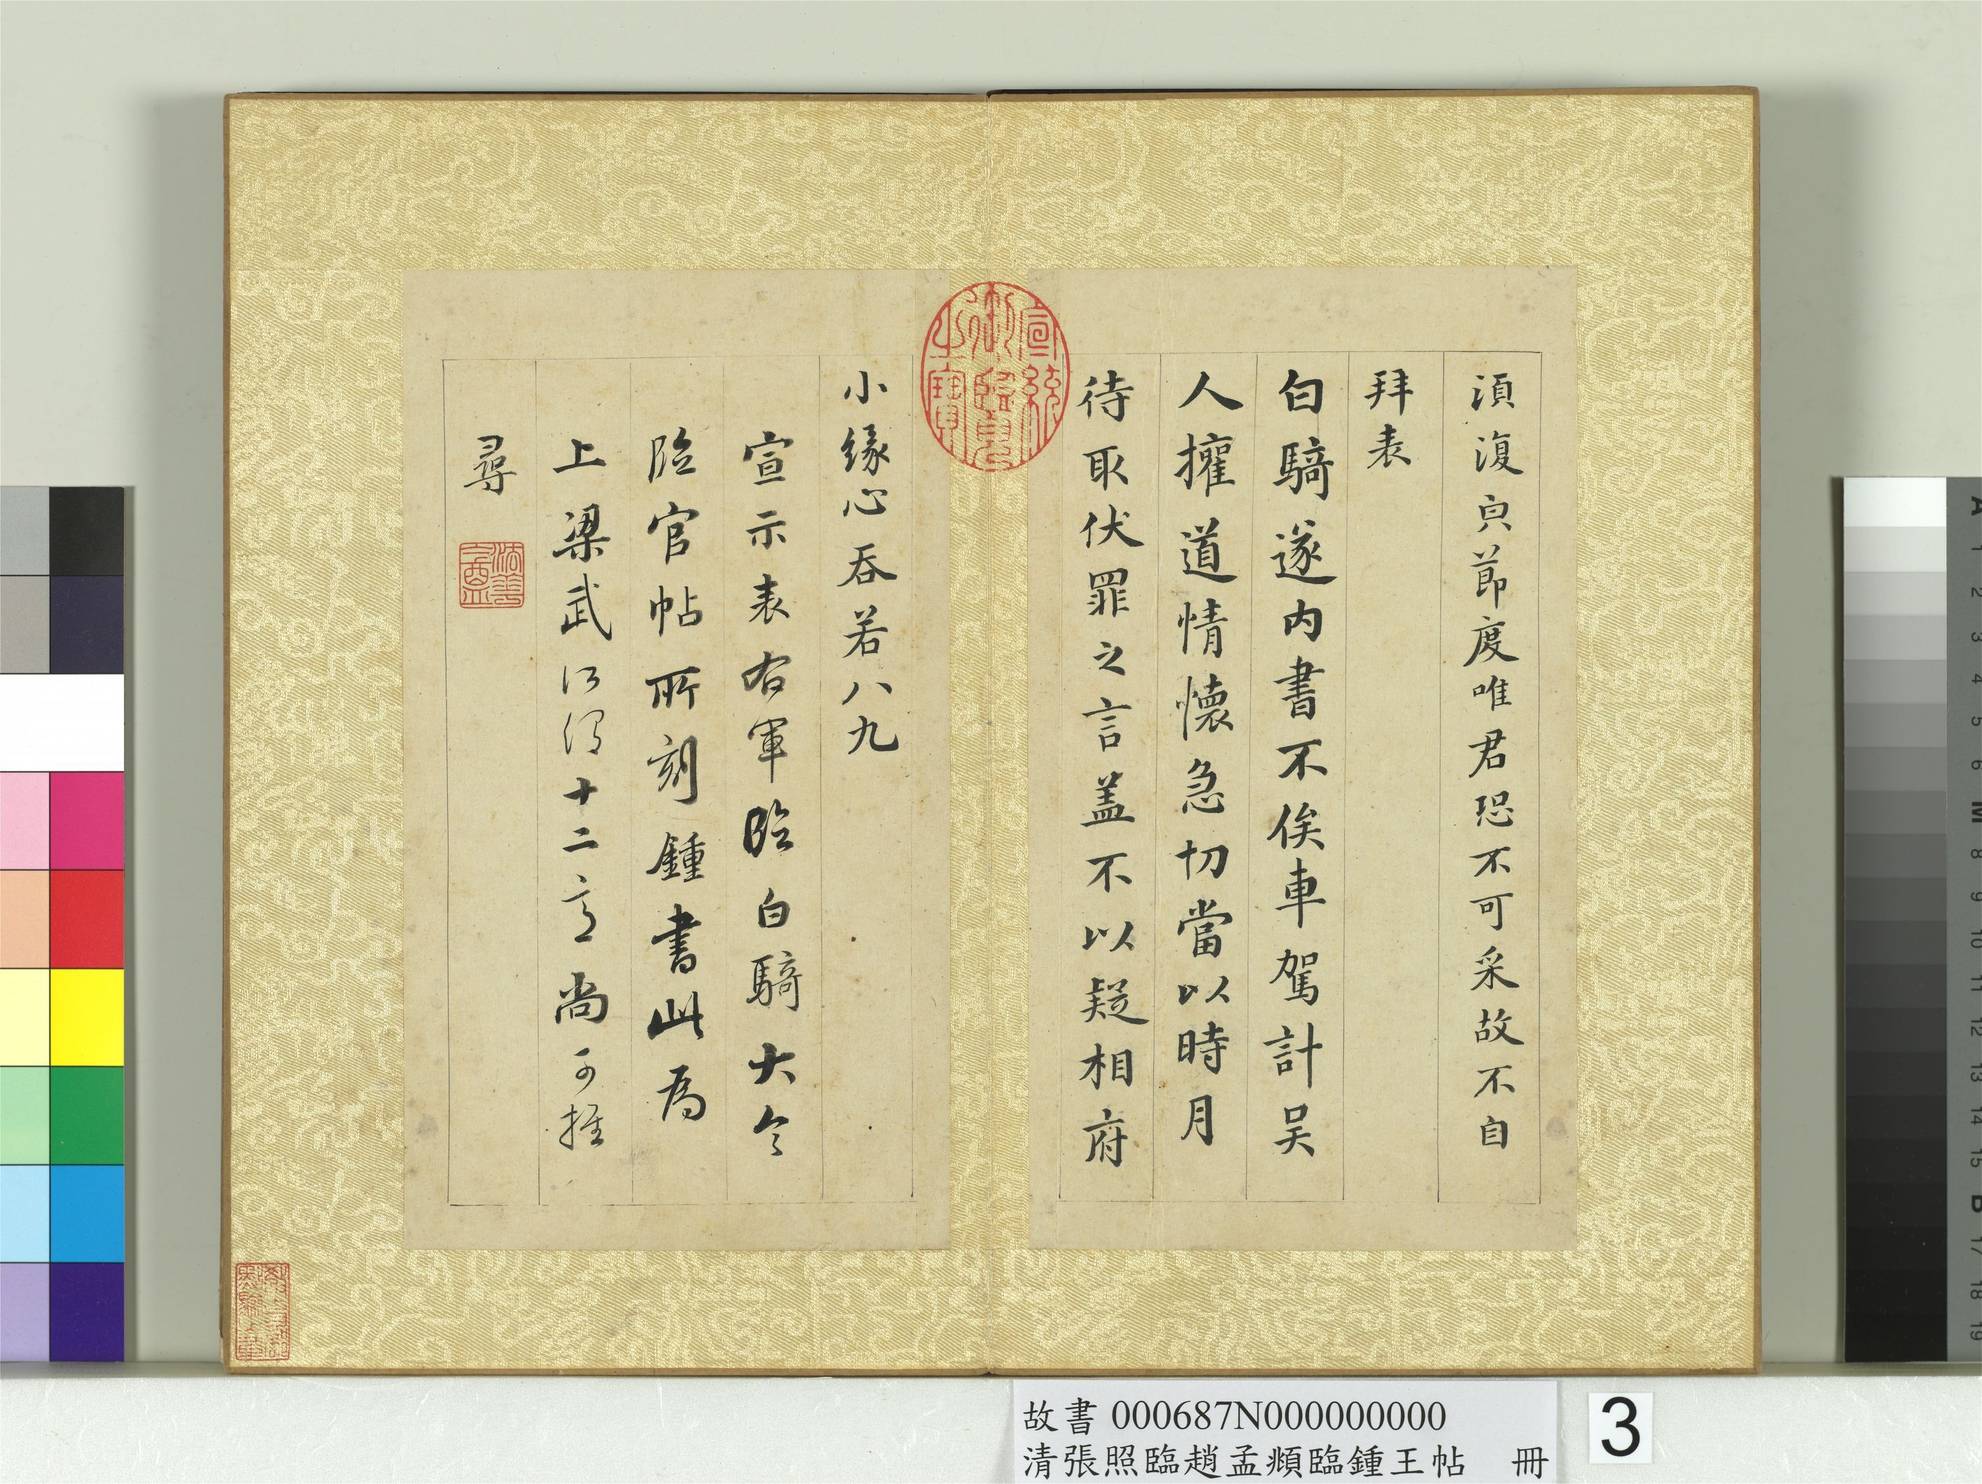 須復貞節度唯君恐不可采故不自
拜表
白騎遂內書不俟車駕計吳
人擁道情懷急切當以時月
待取伏罪之言盖不以疑相府
小緣心吞若八九
宣示表右軍臨白騎大令
臨官帖所刻鍾書此為
上梁武所謂十二意尚可推
尋
宣統御覽之寶
故書 000687N000000000
清張照臨趙孟頫臨鍾王帖 冊
3